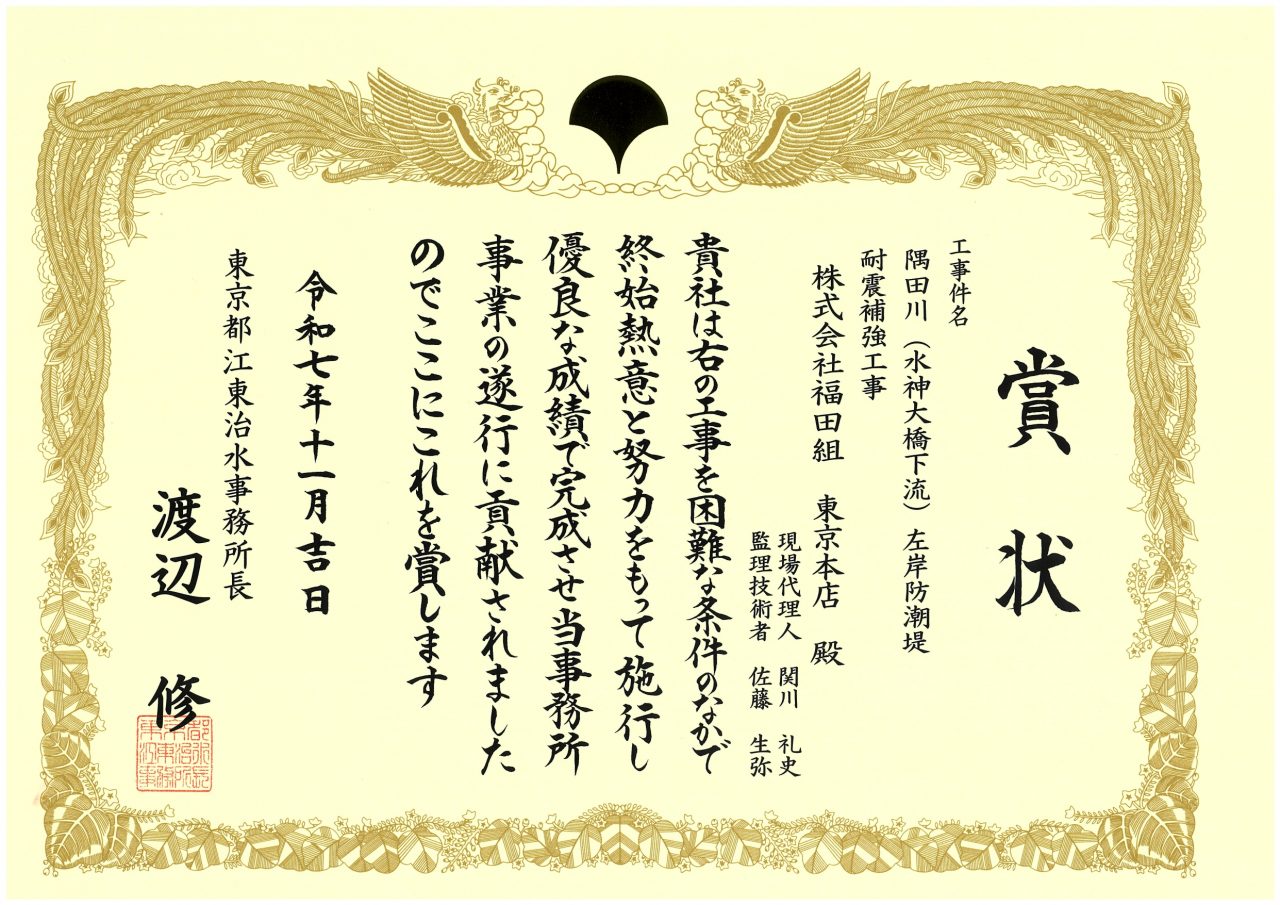 賞状
工事件名
隅田川（水神大橋下流）左岸防潮堤
耐震補強工事
株式会社福田組　東京本店　殿
現場代理人　関川　礼史
監理技術者　佐藤　生弥
貴社は右の工事を困難な条件のなかで
終始熱意と努力をもって施行し
優良な成績で完成させ当事務所
事業の遂行に貢献されました
のでここにこれを賞します
令和七年十一月吉日
東京都江東治水事務所長
渡辺　修